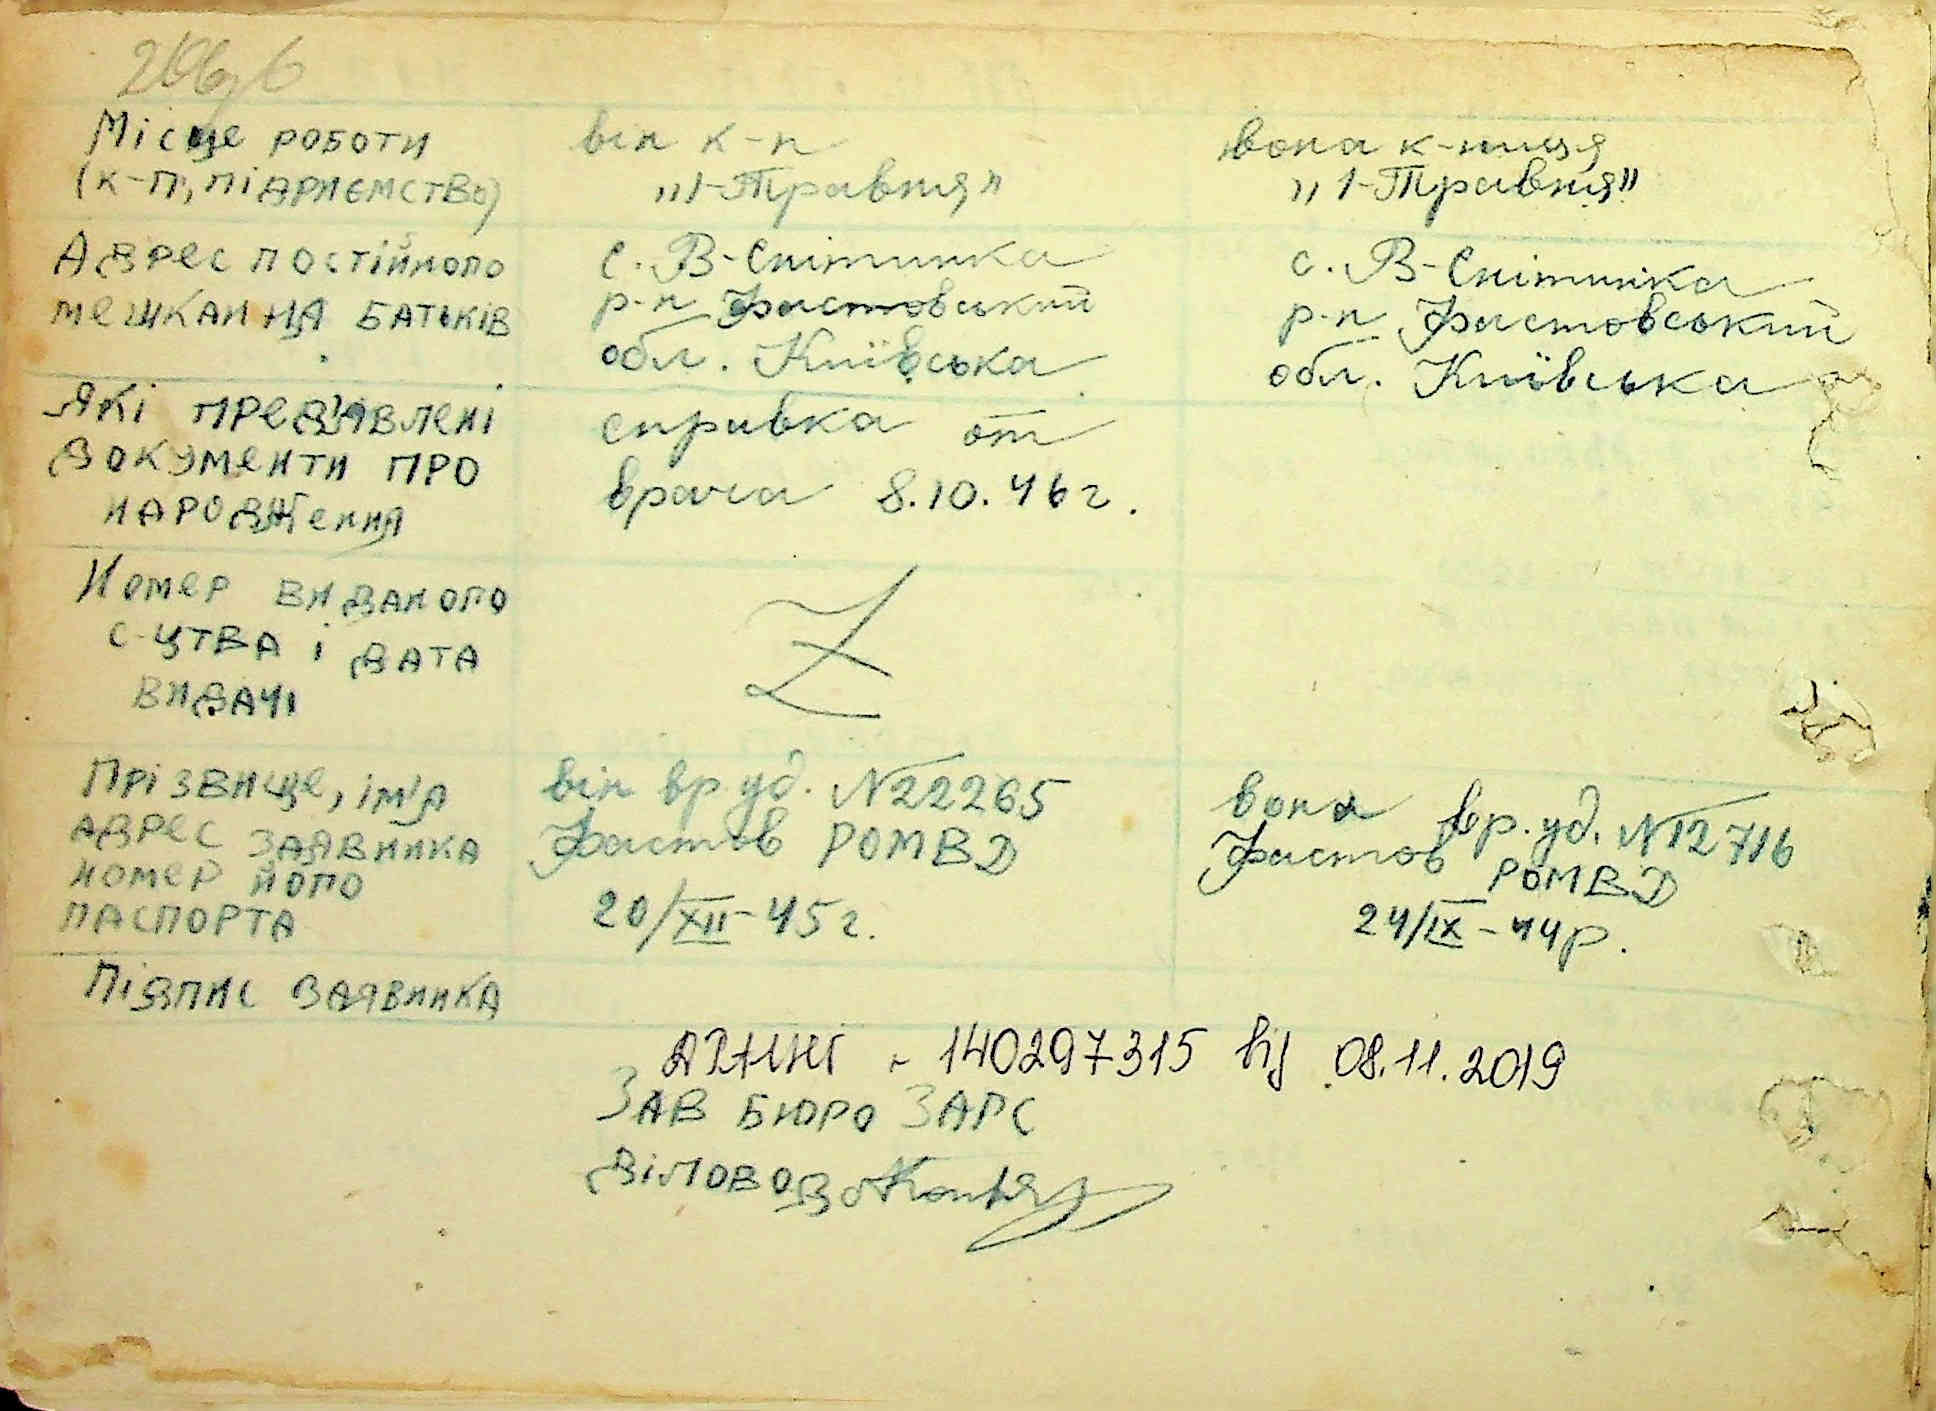 Місце роботи
(к-п, підриємство)
він к-п
„1-Травня"
вона к-ниця
„1-Травня"
Адрес постійного
мешкання батьків
с. В-Снітинка
р-н Фастовський
обл. Київська
с. В-Снітинка
р-н Фастовський
обл. Київська
Які предявлені
документи про
народження
справка от
врача 8.10.46 г.
Номер виданого
с-цтва і дата
видачі
Z
Прізвище, ім'я
адрес заявника
номер його
паспорта
він вр уд. N22265
Фастов РОМВД
20/XII-45 г.
вона вр. уд. N12716
Фастов РОМВД
24/IX-44 р.
Підпис заявника
- 140297315 від 08.11.2019
Зав бюро ЗАГС
Діловод